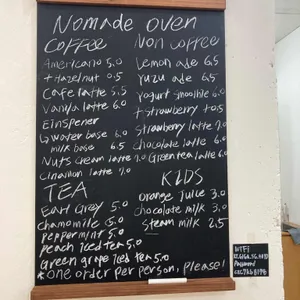 Nomade oven
COFFEE
Americano 5.0
+ Hazelnut 0.5
Cafe latte 5.5
Vanilla latte 6.0
Einspener
↳ Water base 6.0
milk base 6.5
Nuts cream latte 7.0
Cinnamon latte 7.0
TEA
Earl Grey 5.0
chamomile 5.0
Peppermint 5.0
Peach Iced tea 5.0
Green grape Iced tea 5.0
*One order per person, please!
Non coffee
Lemon ade 6.5
Yuzu ade 6.5
Yogurt smoothie 6.0
+ Strawberry +0.5
Strawberry latte 7.0
Chocolate latte 6.0
Green tea latte 6.0
KIDS
Orange Juice 3.0
chocolate milk 3.0
Steam milk 2.5
WIFI
Password